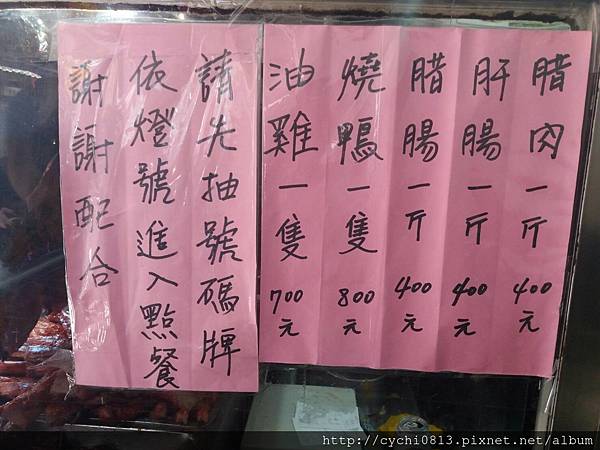 腊肉一斤400元
肝腸一斤400元
腊腸一斤400元
燒鴨一隻800元
油雞一隻700元
請先抽號碼牌
依燈號進入點餐
謝謝配合
http://cychi0813.pixnet.net/album